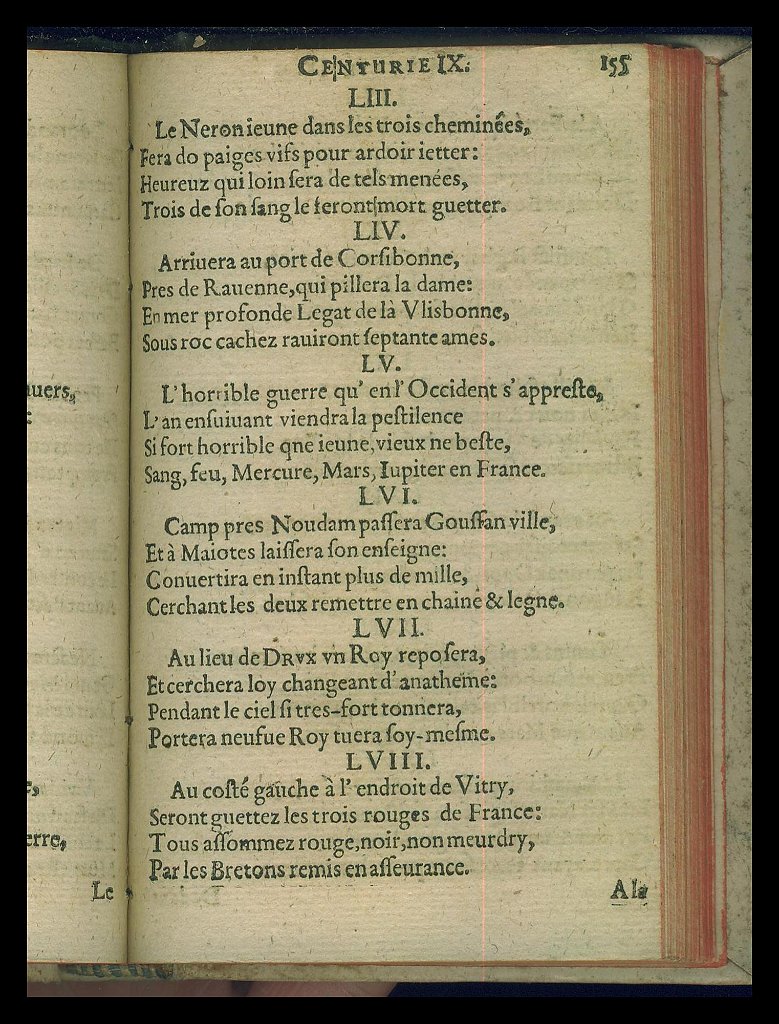 CENTURIE IX. 155
LIII.
Le Neron ieune dans les trois cheminées,
Fera do paiges vifs pour ardoir ietter:
Heureuz qui loin ſera de tels menées,
Trois de ſon ſang le feront mort guetter.
LIV.
Arriuera au port de Corſibonne,
Pres de Rauenne, qui pillera la dame:
En mer profonde Legat de là Vlisbonne,
Sous roc cachez rauiront ſeptante ames.
LV.
L'horrible guerre qu' en l' Occident s'appreſte,
L'an enſuiuant viendra la peſtilence
Si fort horrible qne ieune, vieux ne beſte,
Sang, feu, Mercure, Mars, Iupiter en France.
LVI.
Camp pres Noudam paſſera Gouſſan ville,
Et à Maiotes laiſſera ſon enſeigne:
Conuertira en inſtant plus de mille,
Cerchant les deux remettre en chaine & legne.
LVII.
Au lieu de DRVX vn Roy repoſera,
Et cerchera loy changeant d'anatheme:
Pendant le ciel ſi tres-fort tonnera,
Portera neufue Roy tuera ſoy-meſme.
LVIII.
Au coſté gauche à l' endroit de Vitry,
Seront guettez les trois rouges de France:
Tous aſſommez rouge, noir, non meurdry,
Par les Bretons remis en aſſeurance.
A la
uers,
:
erre,
Le